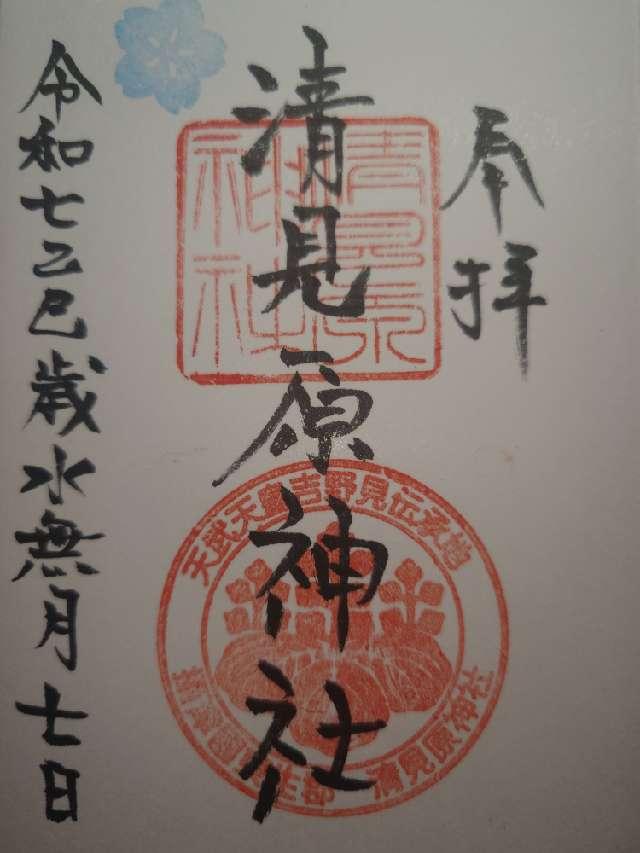 奉拝
清見原神社
令和七乙巳歳水無月七日
清見原神社
天武天皇吉野見伝承地
清見原神社